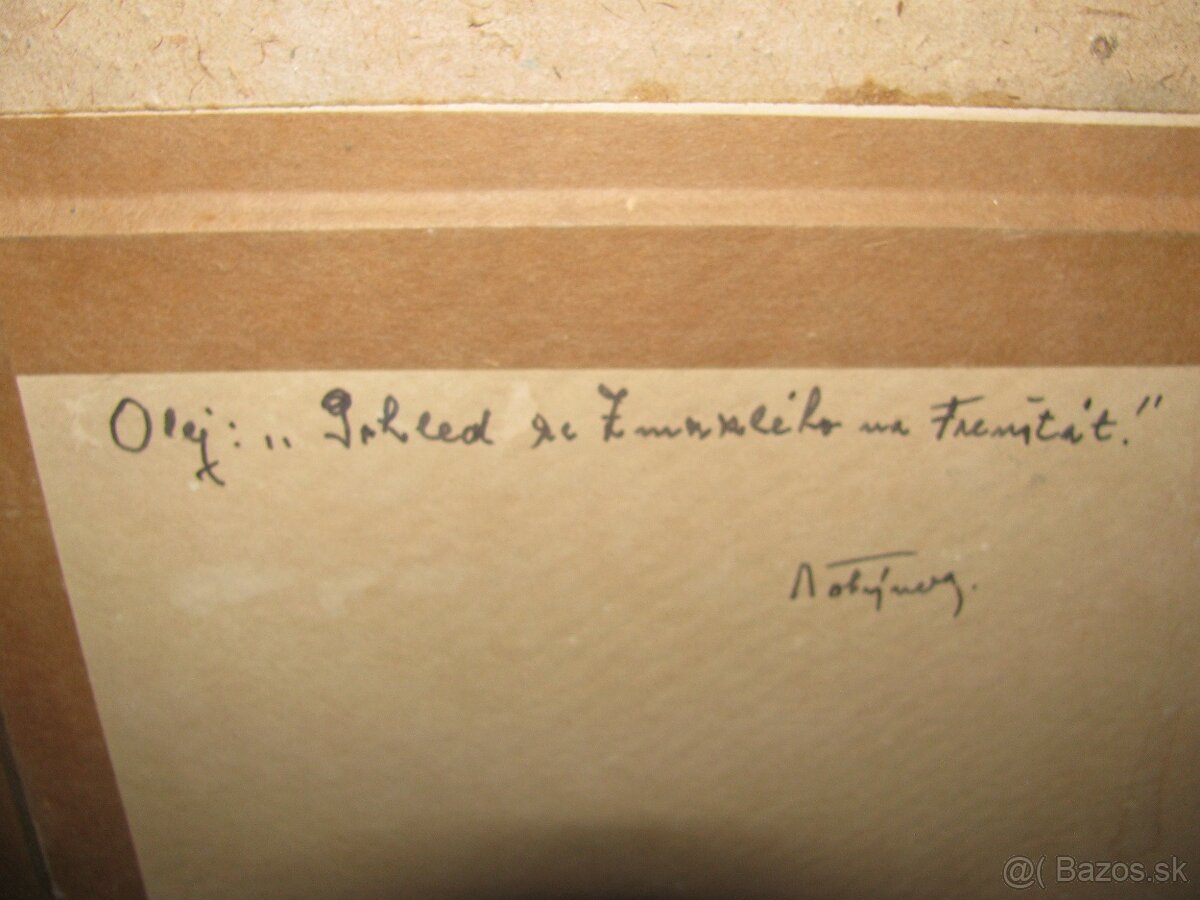 Olej: „ Pohled ze Zmrzlého na Frenštát."
@( Bazos.sk